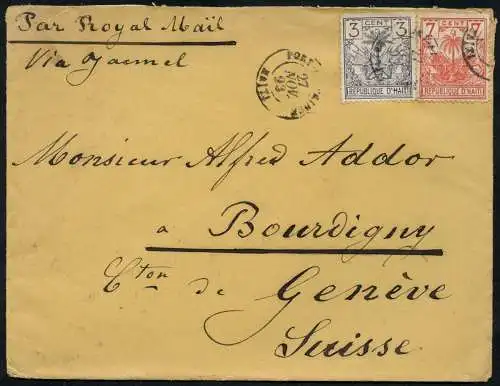 Par Royal Mail
Via Jacmel
3 CENT 3
REPUBLIQUE D'HAITI
7 CENT 7
REPUBLIQUE D'HAITI
PORT
27
NOV
93
HAITI
Monsieur Alfred Addor
a Bourdigny
Cton de Genève
Suisse